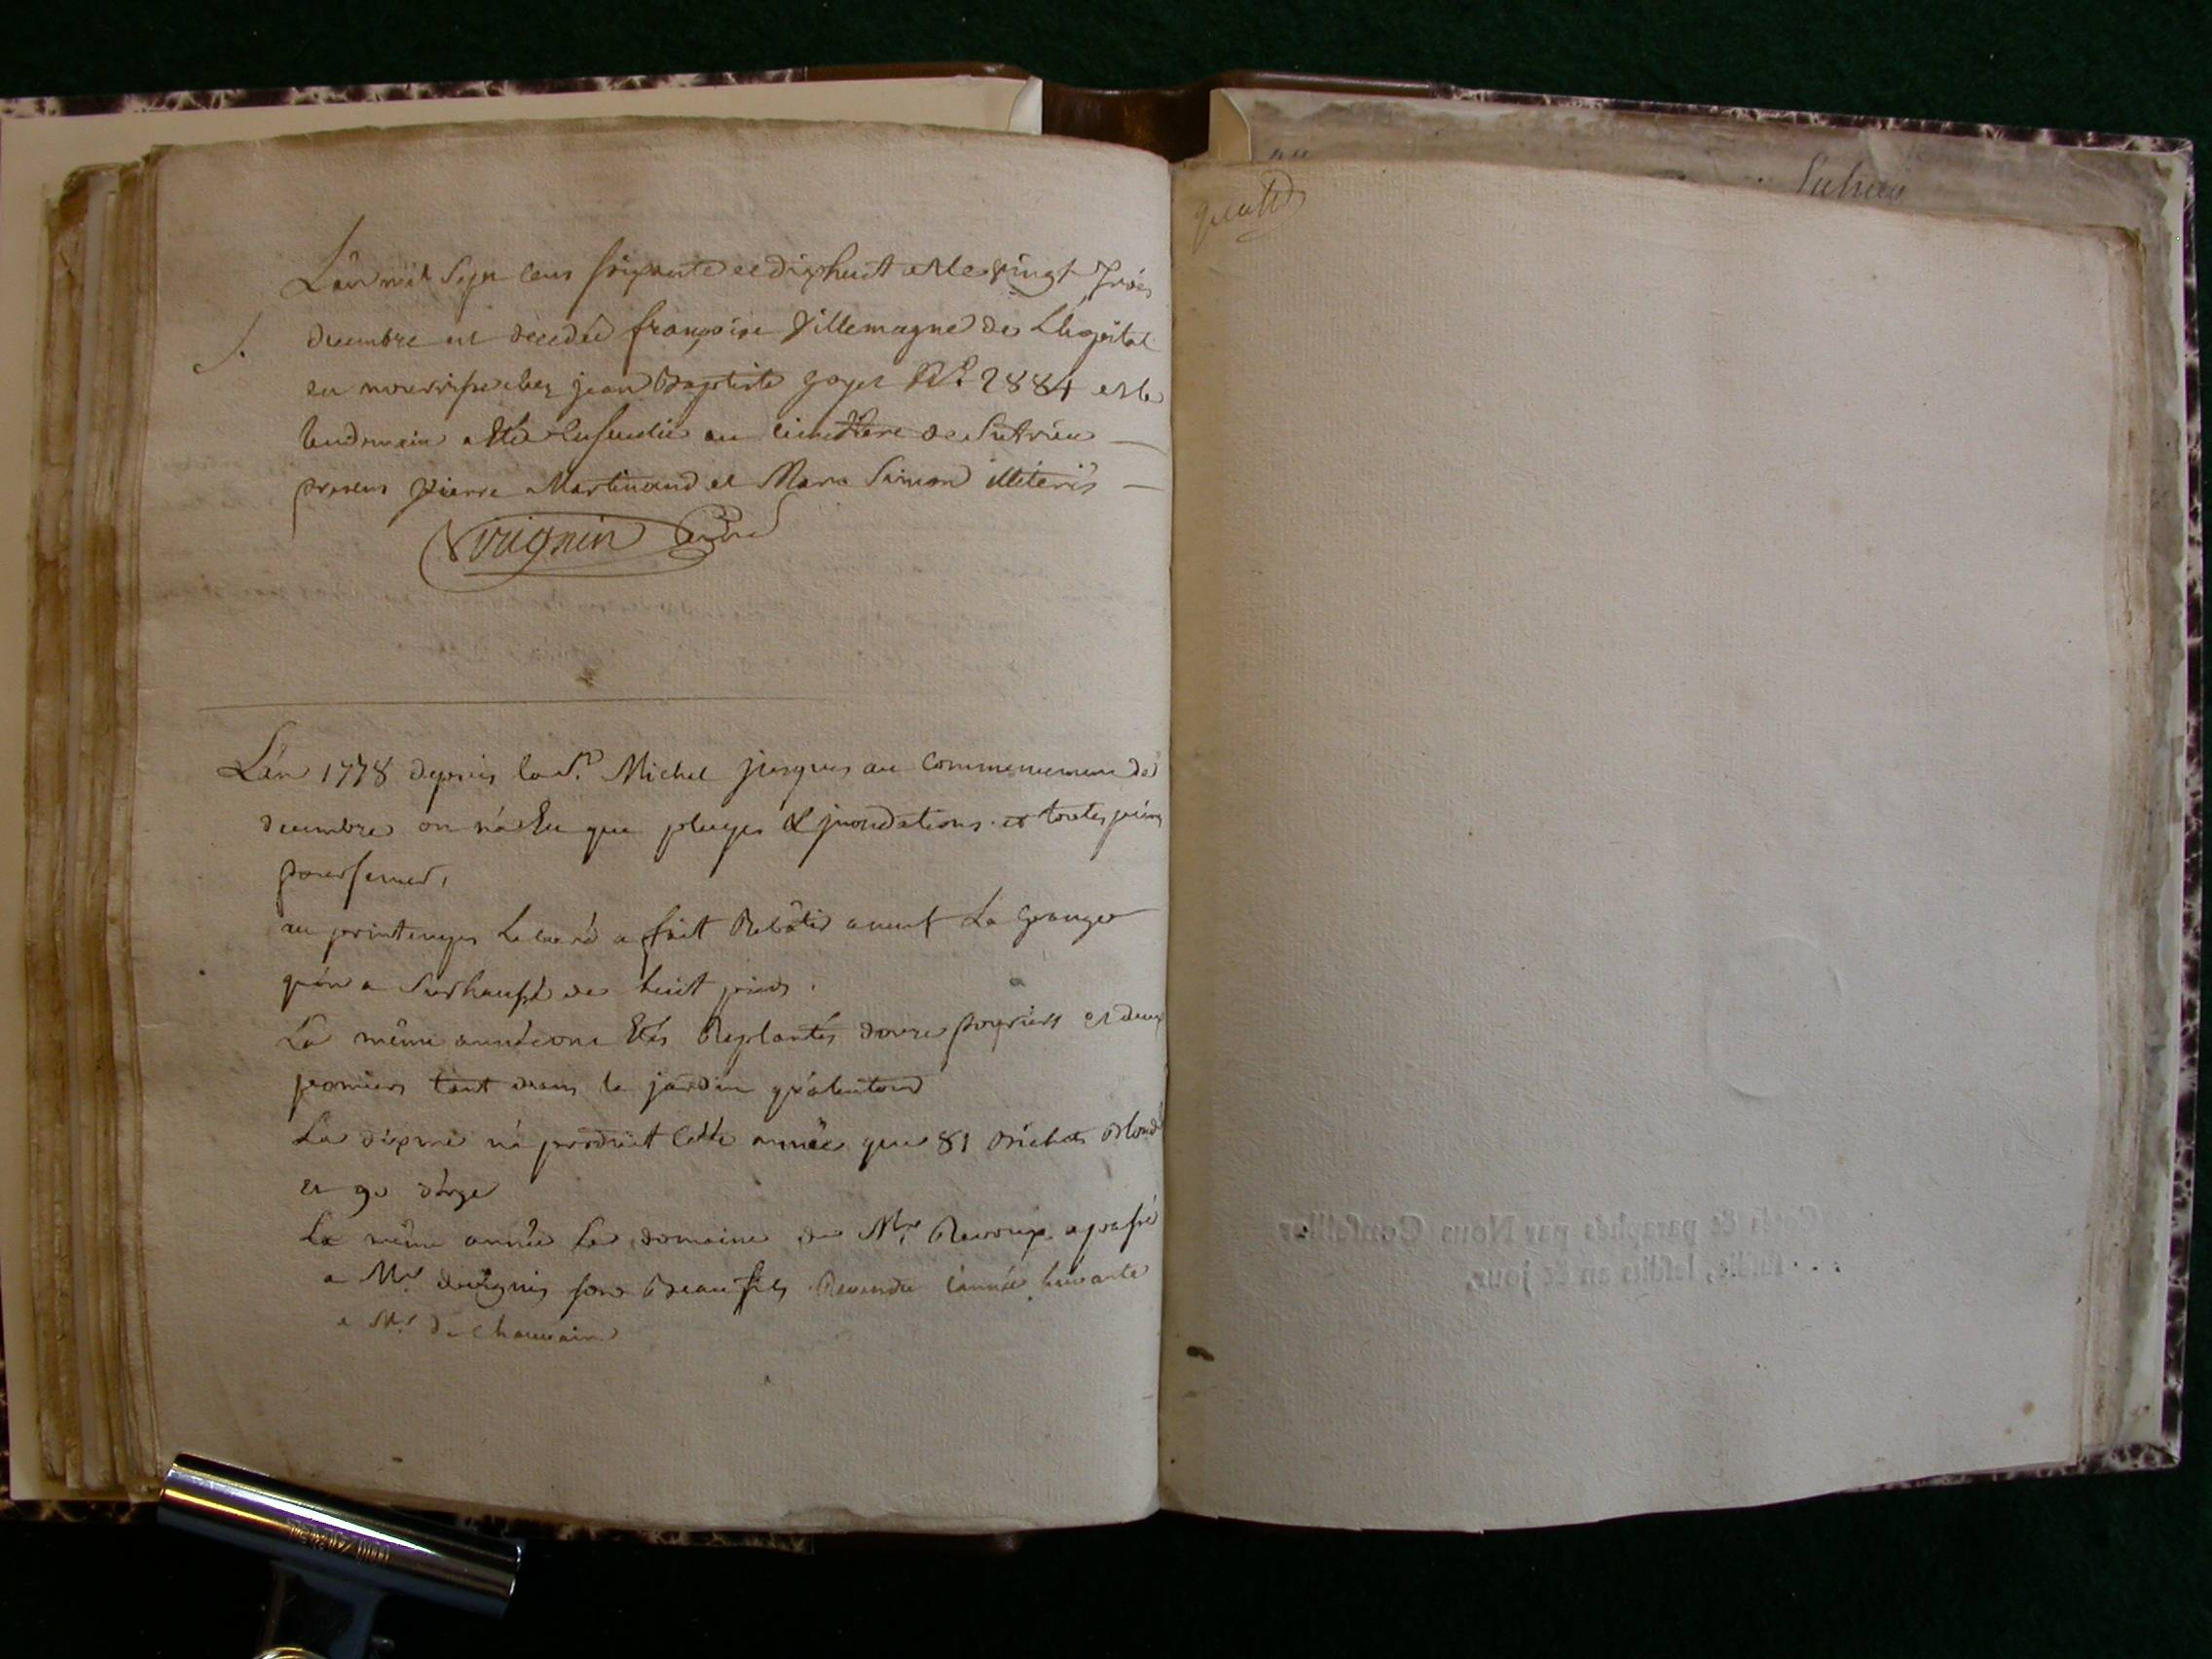 L'an mil sept cens soixante et dixhuit et le vingt trois
S. decembre est decedée françoise Villemagne de L'hopital
en nourrisse chez jean Baptiste goyet N.° 2884 et le
lendemain a Eté Ensevelie au cimettiere de Sutrieu —
presens pierre Martinand et Marc Simon illiterés —
curé
L'an 1778 depuis la S.t Michel jusques au commencement de
decembre on n'a Eu que pluyes & jnondations et toutes peines
pour semer,
au printemps Le curé a fait Rebâtir a neuf La Grange
qu'on a Surhaussé de huit pieds.
La même année ont Etés Replantés douze poyriers et deux
pomiers tant dans le jardin qu'alentour
La dixme n'a produit cette année que 81 bichets blond
et 90 d'orge
La même année Le domaine de Mr. a passé
a Mr. son Beau fils Revendu l'année suivante
a Mr. de
quatre
Sutrieu
& paraphés par Nous Conseiller
susdit, lesdits an & jour.